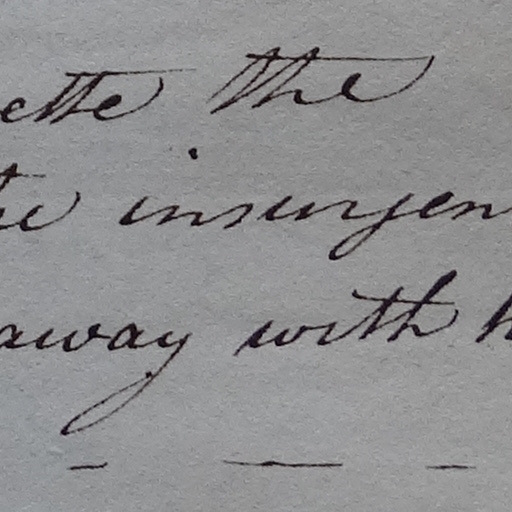 ette the
the insurgen
away with h
— — —